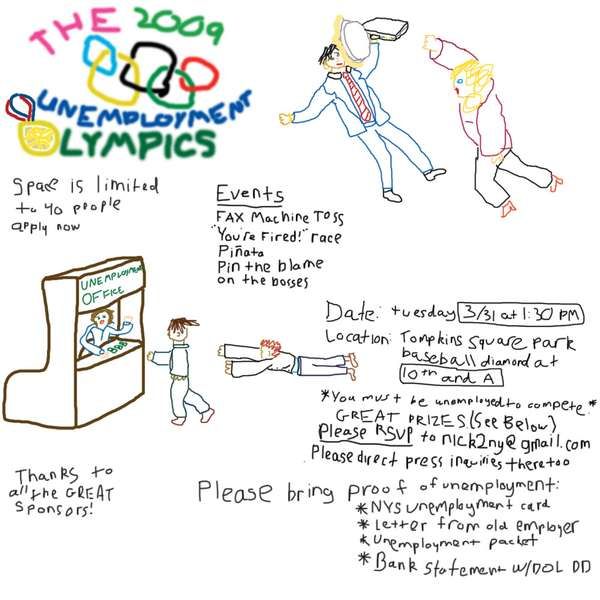 THE 2009
UNEMPLOYMENT
OLYMPICS
Space is limited
to 40 people
apply now
Events
FAX Machine Toss
"You're Fired!" race
Piñata
Pin the blame
on the bosses
UNEMPLOYMENT
OFFICE
Date: tuesday 3/31 at 1:30 PM
Location: Tompkins Square park
baseball diamond at
10th and A
*You must be unemployed to compete*
GREAT PRIZES (See Below)
Please RSVP to nick2ny@gmail.com
Please direct press inquiries there too
Thanks to
all the GREAT
Sponsors!
Please bring proof of unemployment:
*NYS unemployment card
*Letter from old employer
*Unemployment packet
*Bank Statement w/DOL DD